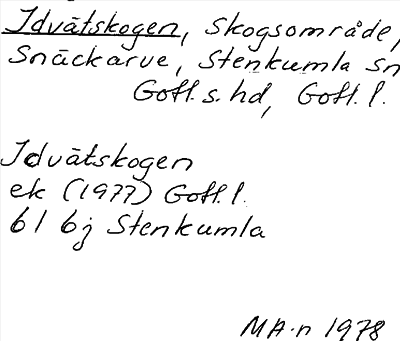 Idvätskogen, Skogsområde,
Snäckarve, Stenkumla sn
Gotl. s. hd, Gotl. l.
Idvätskogen
ek (1977) Gotl. l.
bl 6j Stenkumla
MA-n 1978